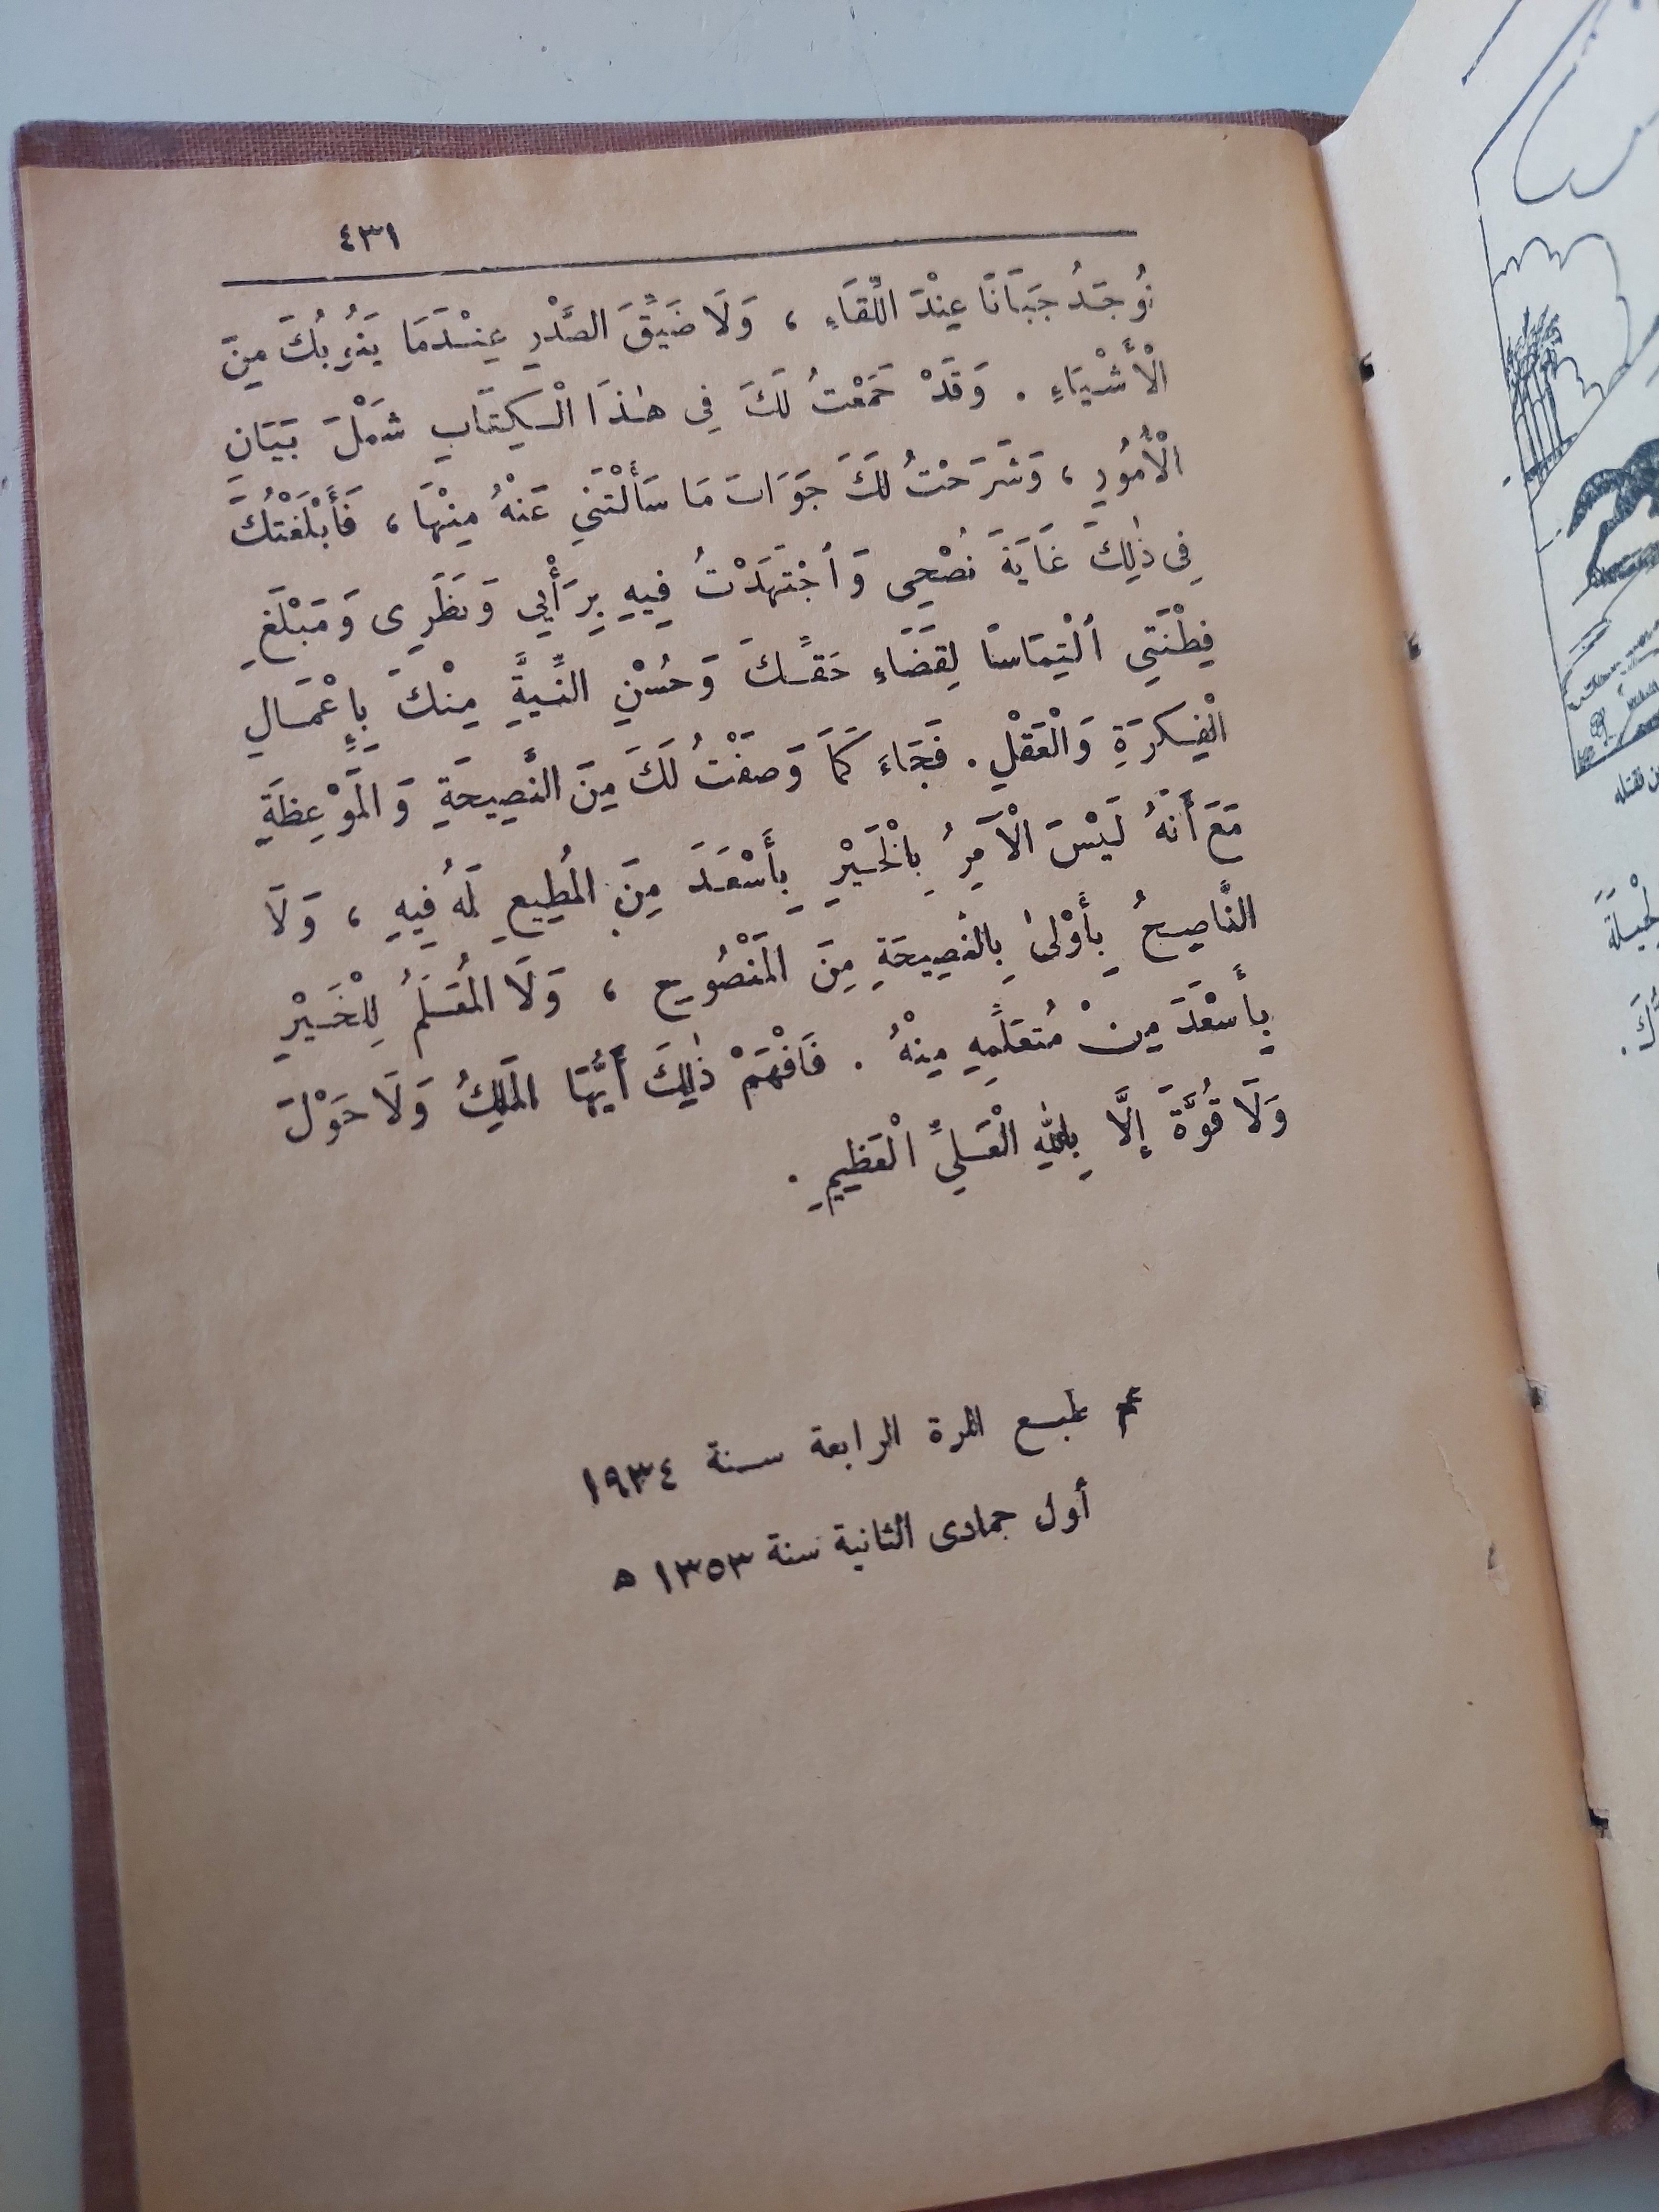 ٤٣١
تُوجَدُ جَبَانًا عِنْدَ اللِّقَاءِ ، وَلَا ضَيِّقَ الصَّدْرِ عِنْدَمَا يَنُوبُكَ مِنَ
الْأَشْيَاءِ . وَقَدْ جَمَعْتُ لَكَ فِى هٰذَا الْكِتَابِ شَمْلَ بَيَانِ
الْأُمُورِ ، وَشَرَحْتُ لَكَ جَوَابَ مَا سَأَلْتَنِي عَنْهُ مِنْهَا ، فَأَبْلَغْتُكَ
فِى ذٰلِكَ غَايَةَ نُصْحِى وَاجْتَهَدْتُ فِيهِ بِرَأْيِي وَنَظَرِى وَمَبْلَغِ
فِطْنَتِي الْتِمَاسًا لِقَضَاءِ حَقِّكَ وَحُسْنِ النِّيَّةِ مِنْكَ بِإِعْمَالِ
الْفِكْرَةِ وَالْعَقْلِ . فَجَاءَ كَمَا وَصَفْتُ لَكَ مِنَ النَّصِيحَةِ وَالْمَوْعِظَةِ
مَعَ أَنَّهُ لَيْسَ الْآمِرُ بِالْخَيْرِ بِأَسْعَدَ مِنَ الْمُطِيعِ لَهُ فِيهِ ، وَلَا
النَّاصِحُ بِأَوْلَى بِالنَّصِيحَةِ مِنَ الْمَنْصُوحِ ، وَلَا الْمُعَلِّمُ لِلْخَيْرِ
بِأَسْعَدَ مِنْ مُتَعَلِّمِهِ مِنْهُ . فَافْهَمْ ذٰلِكَ أَيُّهَا الْمَلِكُ وَلَا حَوْلَ
وَلَا قُوَّةَ إِلَّا بِاللهِ الْعَلِيِّ الْعَظِيمِ .
تم طبع المرة الرابعة سنة ١٩٣٤
أول جمادى الثانية سنة ١٣٥٣ ه